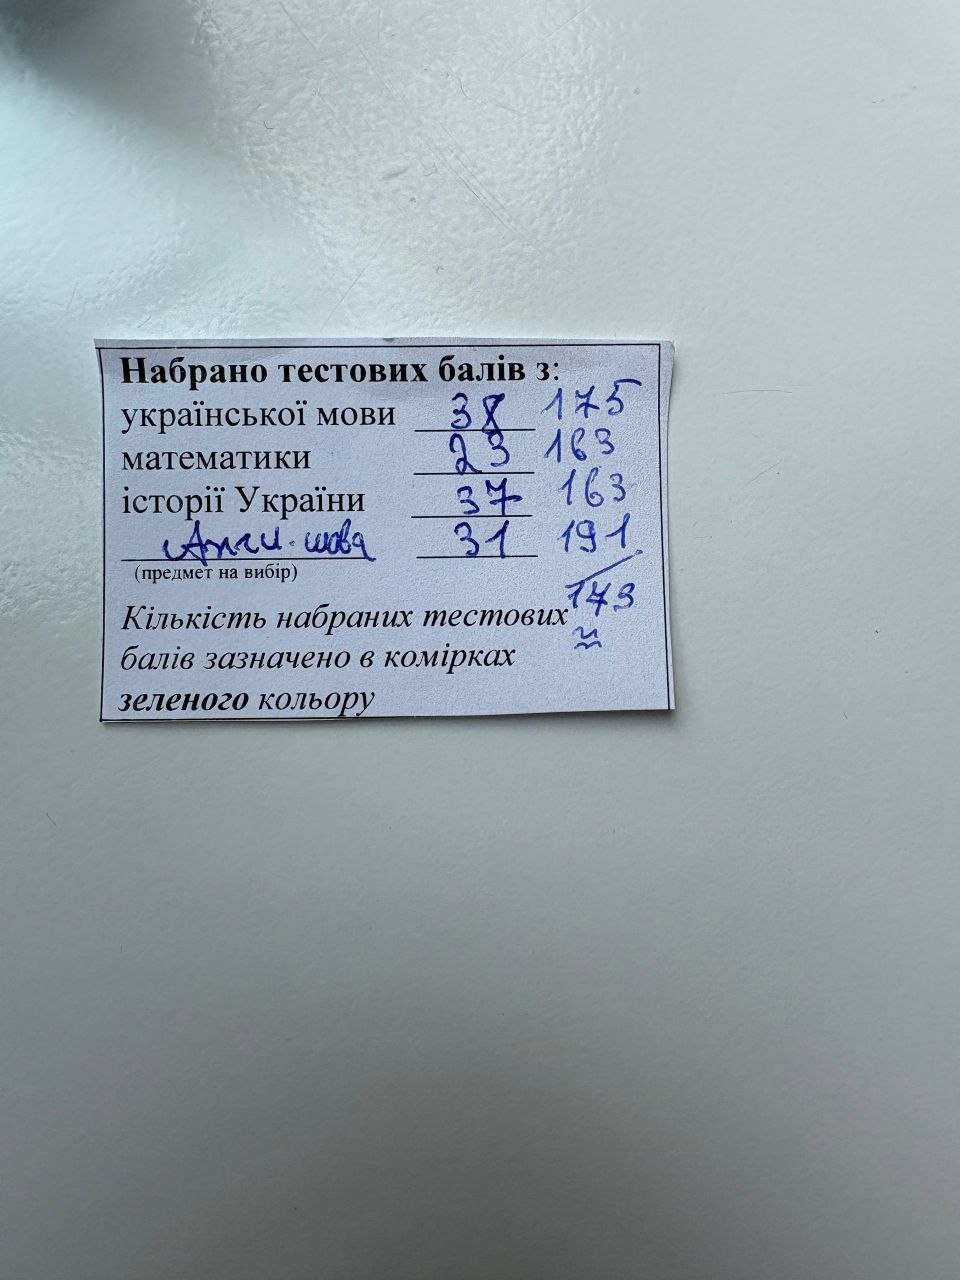 Набрано тестових балів з:
української мови 38 175
математики 23 163
історії України 37 163
Англ. мова 31 191
(предмет на вибір)
173
Кількість набраних тестових
балів зазначено в комірках
зеленого кольору